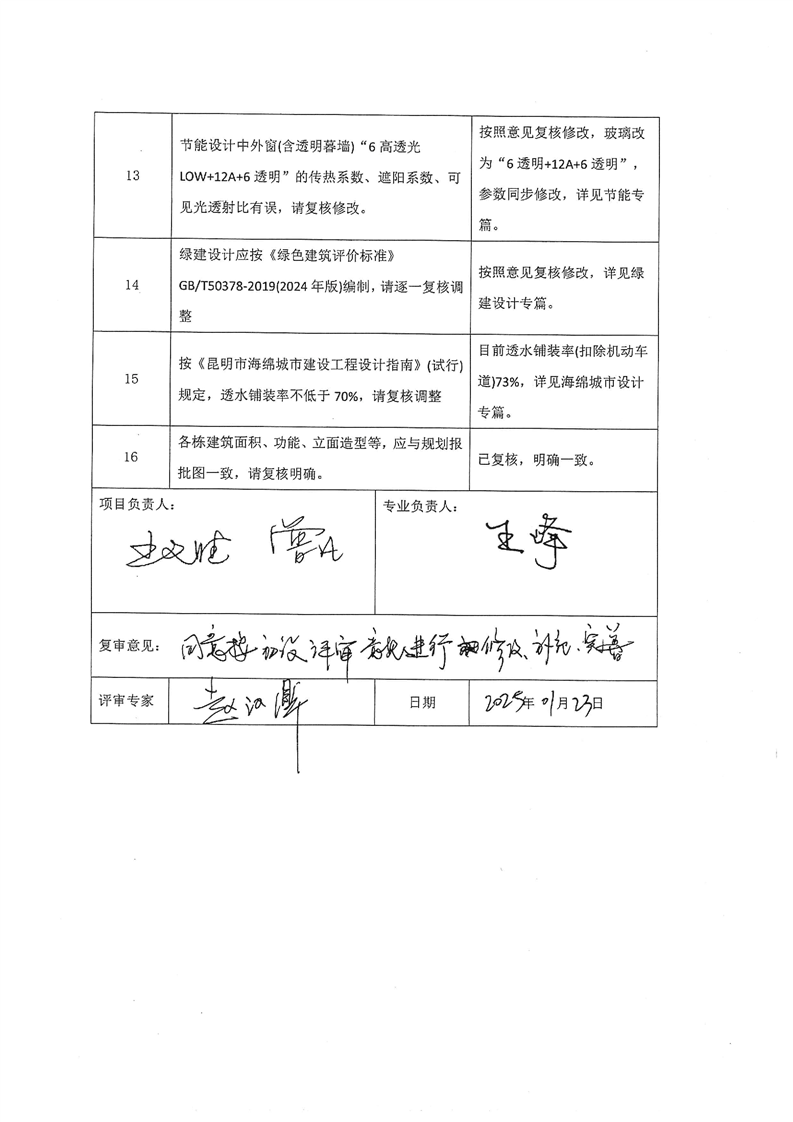 13
节能设计中外窗(含透明暮墙)“6 高透光
LOW+12A+6 透明”的传热系数、遮阳系数、可
见光透射比有误，请复核修改。
按照意见复核修改，玻璃改
为“6 透明+12A+6 透明”，
参数同步修改，详见节能专
篇。
14
绿建设计应按《绿色建筑评价标准》
GB/T50378-2019(2024 年版)编制，请逐一复核调
整
按照意见复核修改，详见绿
建设计专篇。
15
按《昆明市海绵城市建设工程设计指南》(试行)
规定，透水铺装率不低于 70%，请复核调整
目前透水铺装率(扣除机动车
道)73%，详见海绵城市设计
专篇。
16
各栋建筑面积、功能、立面造型等，应与规划报
批图一致，请复核明确。
已复核，明确一致。
项目负责人：
专业负责人：
王峰
复审意见： 同意按初设评审意见进行修改、补充、完善
评审专家
日期
2025年01月23日